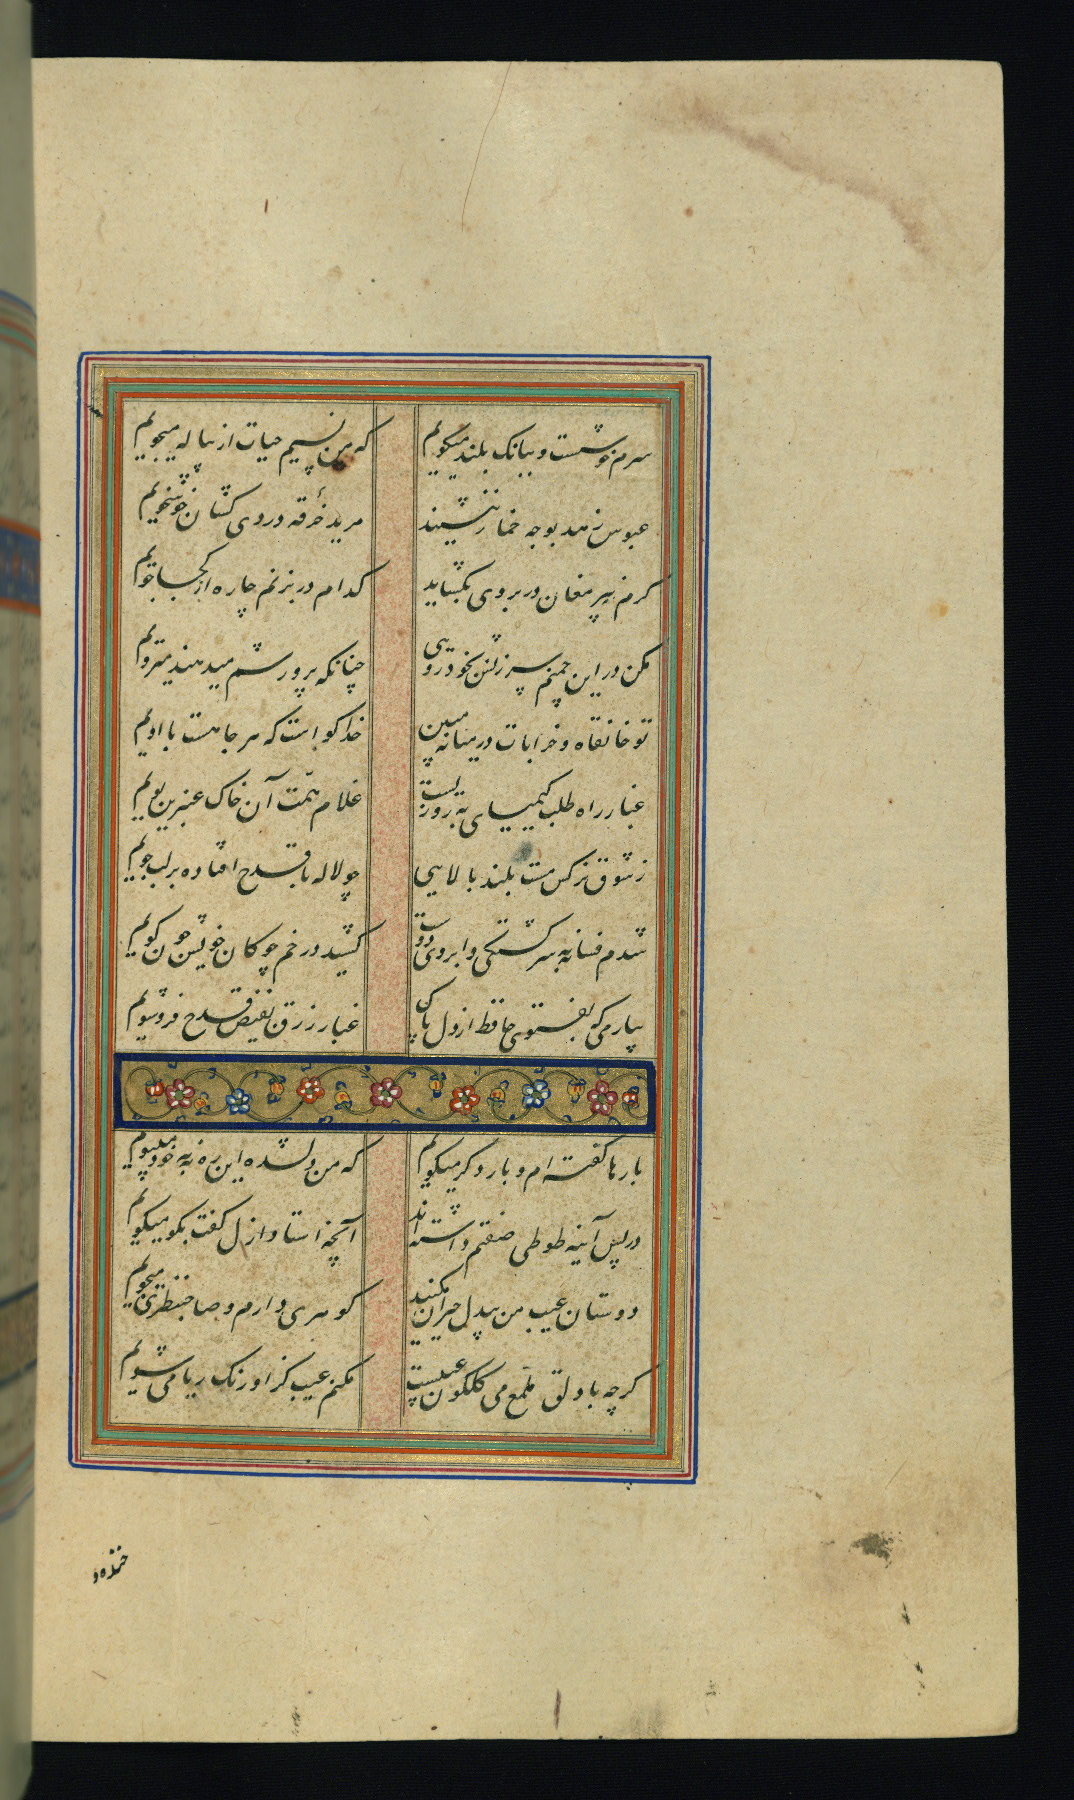 سرم خوشست و ببانک بلند میکویم که من نسیم حیات از پیاله میجویم
عبوس زهد بوجه خمار ننشیند مرید خرقه دردی کشان خوشخویم
کرم نه پیر مغان در بروی بکشاید کدام در بزنم چاره از کجا جویم
مکن در این چمنم سرزنش بخودرویی چنانکه پرورشم میدهند میرویم
تو خانقاه و خرابات در میانه مبین خدا کواست که هر جا هست با اویم
غبار راه طلب کیمیای به روزیست غلام همت آن خاک عنبرین بویم
ز شوق نرکس مست بلند بالایی چو لاله با قدح افتاده بر لب جویم
شدم فسانه به سرکشتکی و ابروی دوست کشید در خم چوکان خویش چون کویم
بیار می که بفتوی حافظ از دل پاک غبار زرق بفیض قدح فروشویم
بارها کفته ام و بار دکر میکویم که من دلشده این ره نه بخود میپویم
در پس آینه طوطی صفتم داشته اند آنچه استاد ازل کفت بکو میکویم
دوستان عیب من بیدل حیران مکنید کوهری دارم و صاحبنظری میجویم
کرچه با دلق ملمع می کلکون عیبست مکنم عیب کزاو رنک ریا می شویم
خنده و